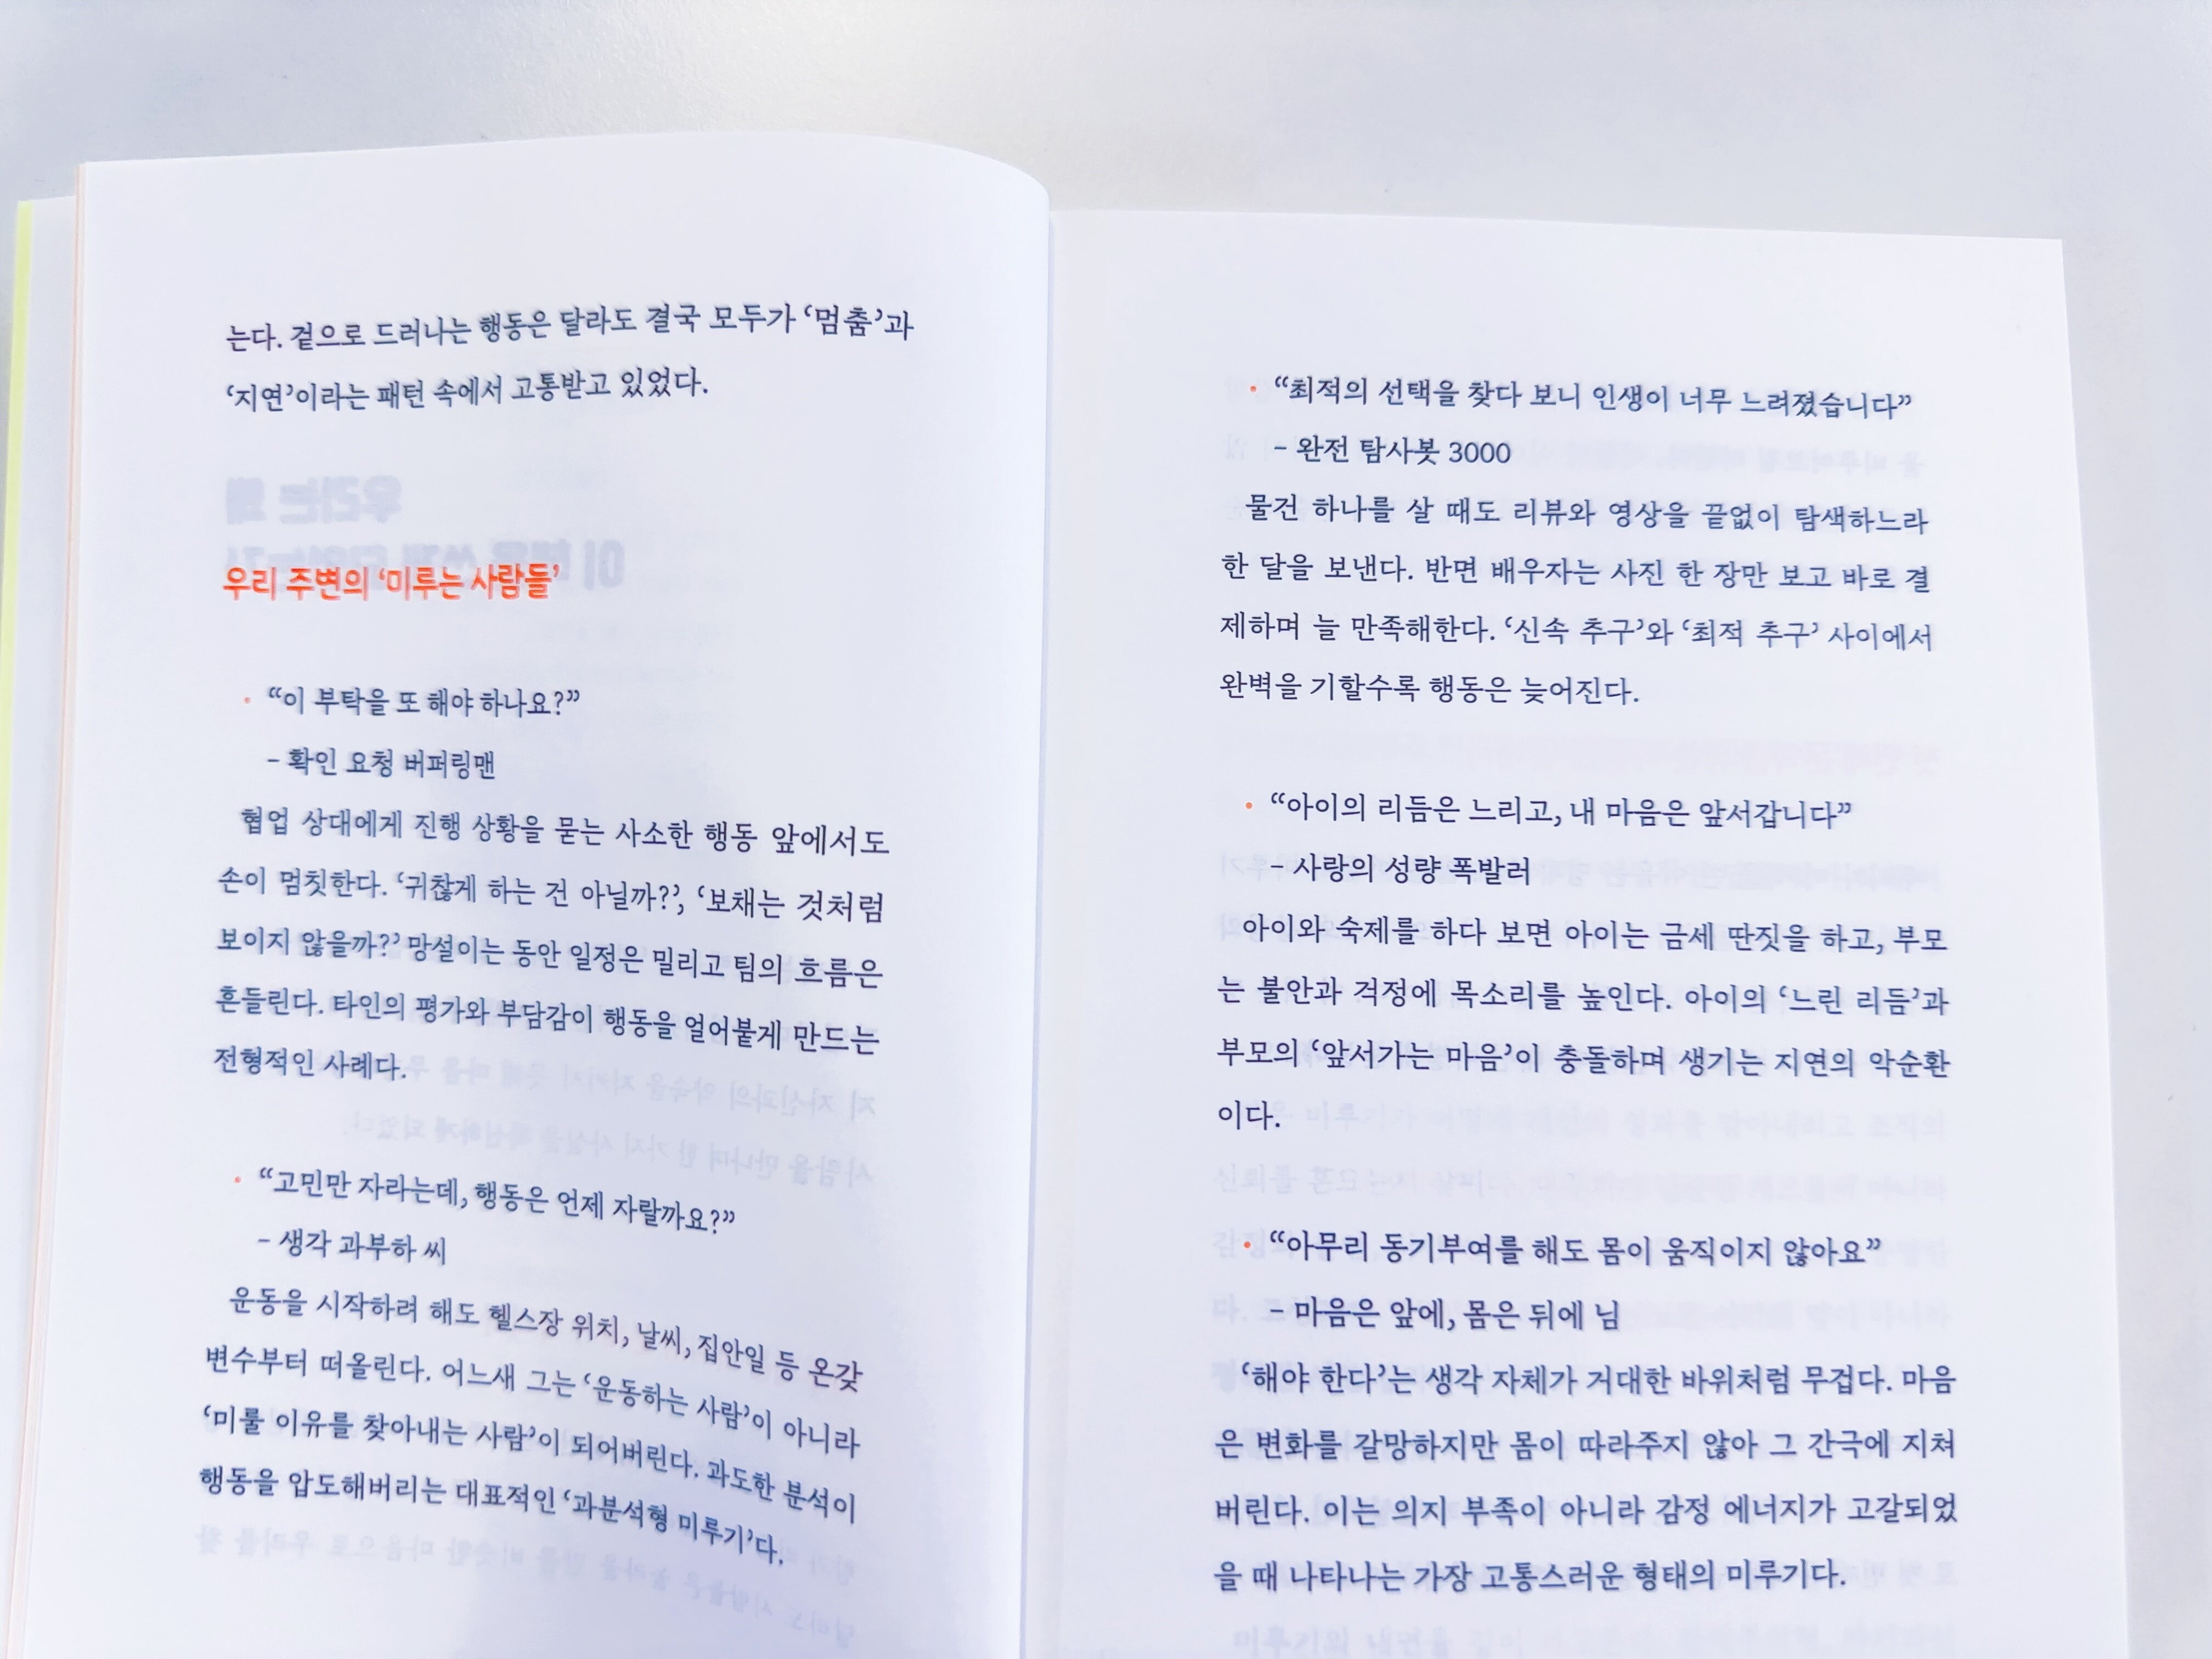 는다. 겉으로 드러나는 행동은 달라도 결국 모두가 ‘멈춤’과
‘지연’이라는 패턴 속에서 고통받고 있었다.
우리 주변의 ‘미루는 사람들’
• “이 부탁을 또 해야 하나요?”
– 확인 요청 버퍼링맨
협업 상대에게 진행 상황을 묻는 사소한 행동 앞에서도
손이 멈칫한다. ‘귀찮게 하는 건 아닐까?’, ‘보채는 것처럼
보이지 않을까?’ 망설이는 동안 일정은 밀리고 팀의 흐름은
흔들린다. 타인의 평가와 부담감이 행동을 얼어붙게 만드는
전형적인 사례다.
• “고민만 자라는데, 행동은 언제 자랄까요?”
– 생각 과부하 씨
운동을 시작하려 해도 헬스장 위치, 날씨, 집안일 등 온갖
변수부터 떠올린다. 어느새 그는 ‘운동하는 사람’이 아니라
‘미룰 이유를 찾아내는 사람’이 되어버린다. 과도한 분석이
행동을 압도해버리는 대표적인 ‘과분석형 미루기’다.
• “최적의 선택을 찾다 보니 인생이 너무 느려졌습니다”
– 완전 탐사봇 3000
물건 하나를 살 때도 리뷰와 영상을 끝없이 탐색하느라
한 달을 보낸다. 반면 배우자는 사진 한 장만 보고 바로 결
제하며 늘 만족해한다. ‘신속 추구’와 ‘최적 추구’ 사이에서
완벽을 기할수록 행동은 늦어진다.
• “아이의 리듬은 느리고, 내 마음은 앞서갑니다”
– 사랑의 성량 폭발러
아이와 숙제를 하다 보면 아이는 금세 딴짓을 하고, 부모
는 불안과 걱정에 목소리를 높인다. 아이의 ‘느린 리듬’과
부모의 ‘앞서가는 마음’이 충돌하며 생기는 지연의 악순환
이다.
• “아무리 동기부여를 해도 몸이 움직이지 않아요”
– 마음은 앞에, 몸은 뒤에 님
‘해야 한다’는 생각 자체가 거대한 바위처럼 무겁다. 마음
은 변화를 갈망하지만 몸이 따라주지 않아 그 간극에 지쳐
버린다. 이는 의지 부족이 아니라 감정 에너지가 고갈되었
을 때 나타나는 가장 고통스러운 형태의 미루기다.